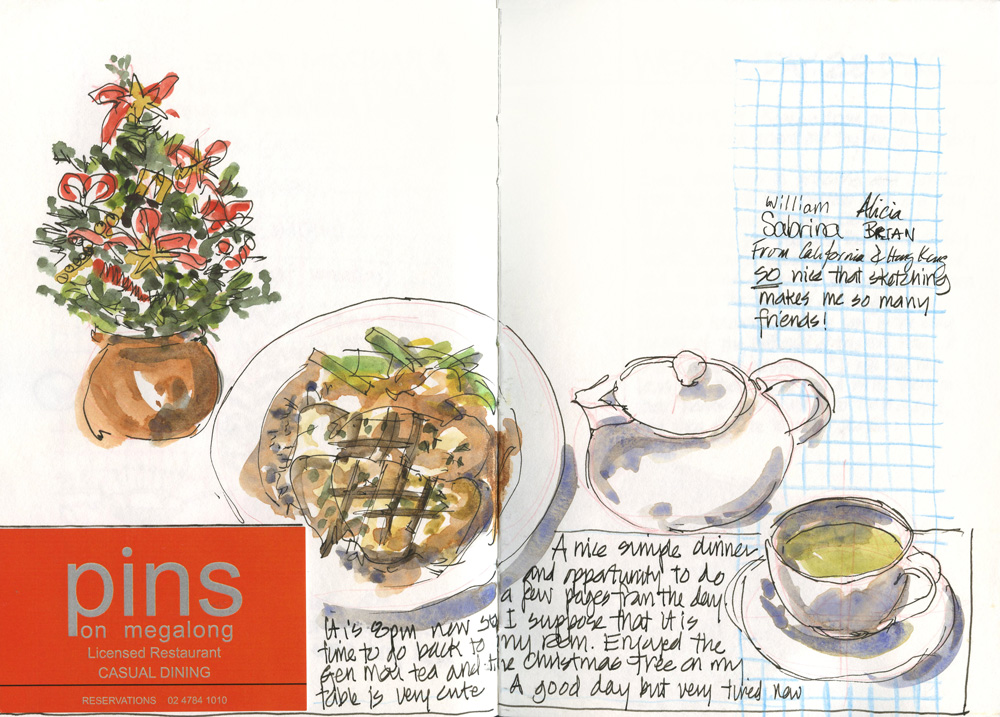 William Alicia
Sabrina BRIAN
From California & Hong Kong
SO nice that sketching
makes me so many
friends!
pins
on megalong
Licensed Restaurant
CASUAL DINING
RESERVATIONS 02 4784 1010
A nice simple dinner
and opportunity to do
a few pages from the day.
It is 8pm now so I suppose that it is
time to go back to my room. Enjoyed the
Gen Mai tea and the Christmas tree on my
table is very cute A good day but very tired now